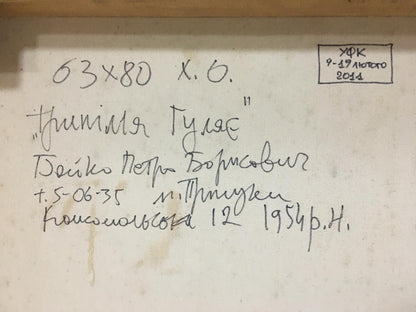 63х80 х.о.
УФК
9-19 лютого
2011
„Трипілля Гуляє"
Бойко Петро Борисович
т. 5-06-35 м. Прилуки
Комсомольська 12 1954 р.н.